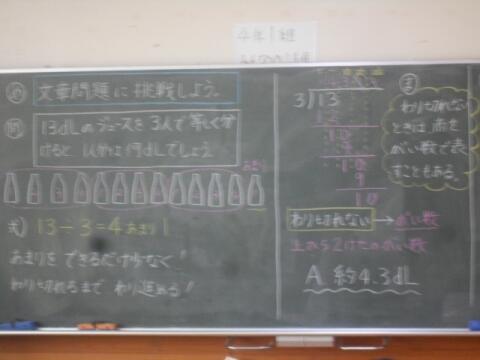 4年1組
め 文章問題に挑戦しよう。
問 13dLのジュースを3人で等しく分
けると 1人分は何dLでしょう
あまり
式) 13÷3=4あまり1
あまりを できるだけ少なく!
わり切れるまで わり進める!
3)13
12
10
9
10
9
10
ま
わり切れない
ときは 商を
がい数で表
すこともある。
わり切れない → がい数
上から2けたのがい数
A 約4.3dL